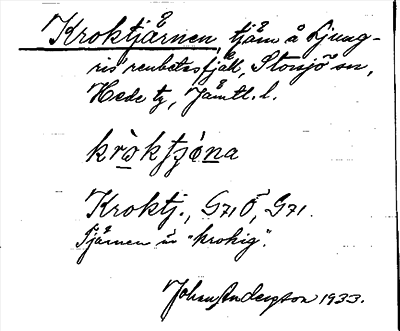 Kroktjårnen, tjärn å Ljung-
ris' renbetesfjäll, Storsjö sn,
Hede tg, Jämtl. l.
Kroktj., G71Ö, G71.
Tjärnen är "krokig".
Johan Anderzson 1933.